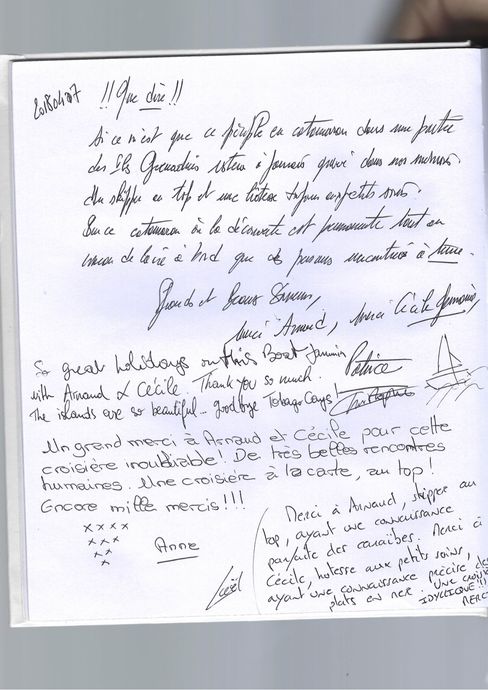 20180407
!! Que dire !!
Si ce n'est que ce périple en catamaran dans une partie
des Iles Grenadines restera à jamais gravé dans nos mémoires.
Un skipper au top et une hôtesse aux petits soins.
Sur ce catamaran où la découverte est permanente tout en
de la vie à bord que des personnes rencontrées à terre.
Grands et Beaux
Merci Arnaud, Merci Cécile
So great holidays on this Boat
with Arnaud & Cécile. Thank you so much. Patrice
The islands are so beautiful... goodbye Tobago Cays!
Un grand merci à Arnaud et Cécile pour cette
croisière inoubliable! De très belles rencontres
humaines. Une croisière à la carte, au top!
Encore mille mercis!!!
xxxx
xxx
xx
x
Anne
Merci à Arnaud, skipper au
top, ayant une connaissance
parfaite des caraïbes. Merci à
Cécile, hotesse aux petits soins,
ayant une connaissance précise des
plats en mer. UNE
IDYLLIQUE!!
MERCI